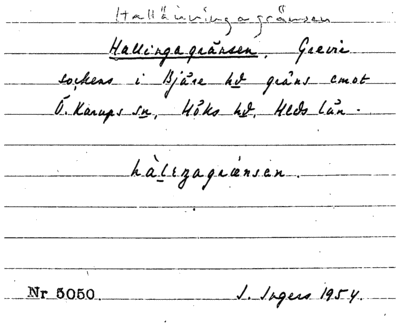 Hallänningagränsen
Hallingagränsen, Grevie
sockens i Bjäre hd gräns emot
Ö. Karups sn, Höks hd, Hlds län.
hàlıngagrænsen.
Nr 5050. I. Ingers 1954.